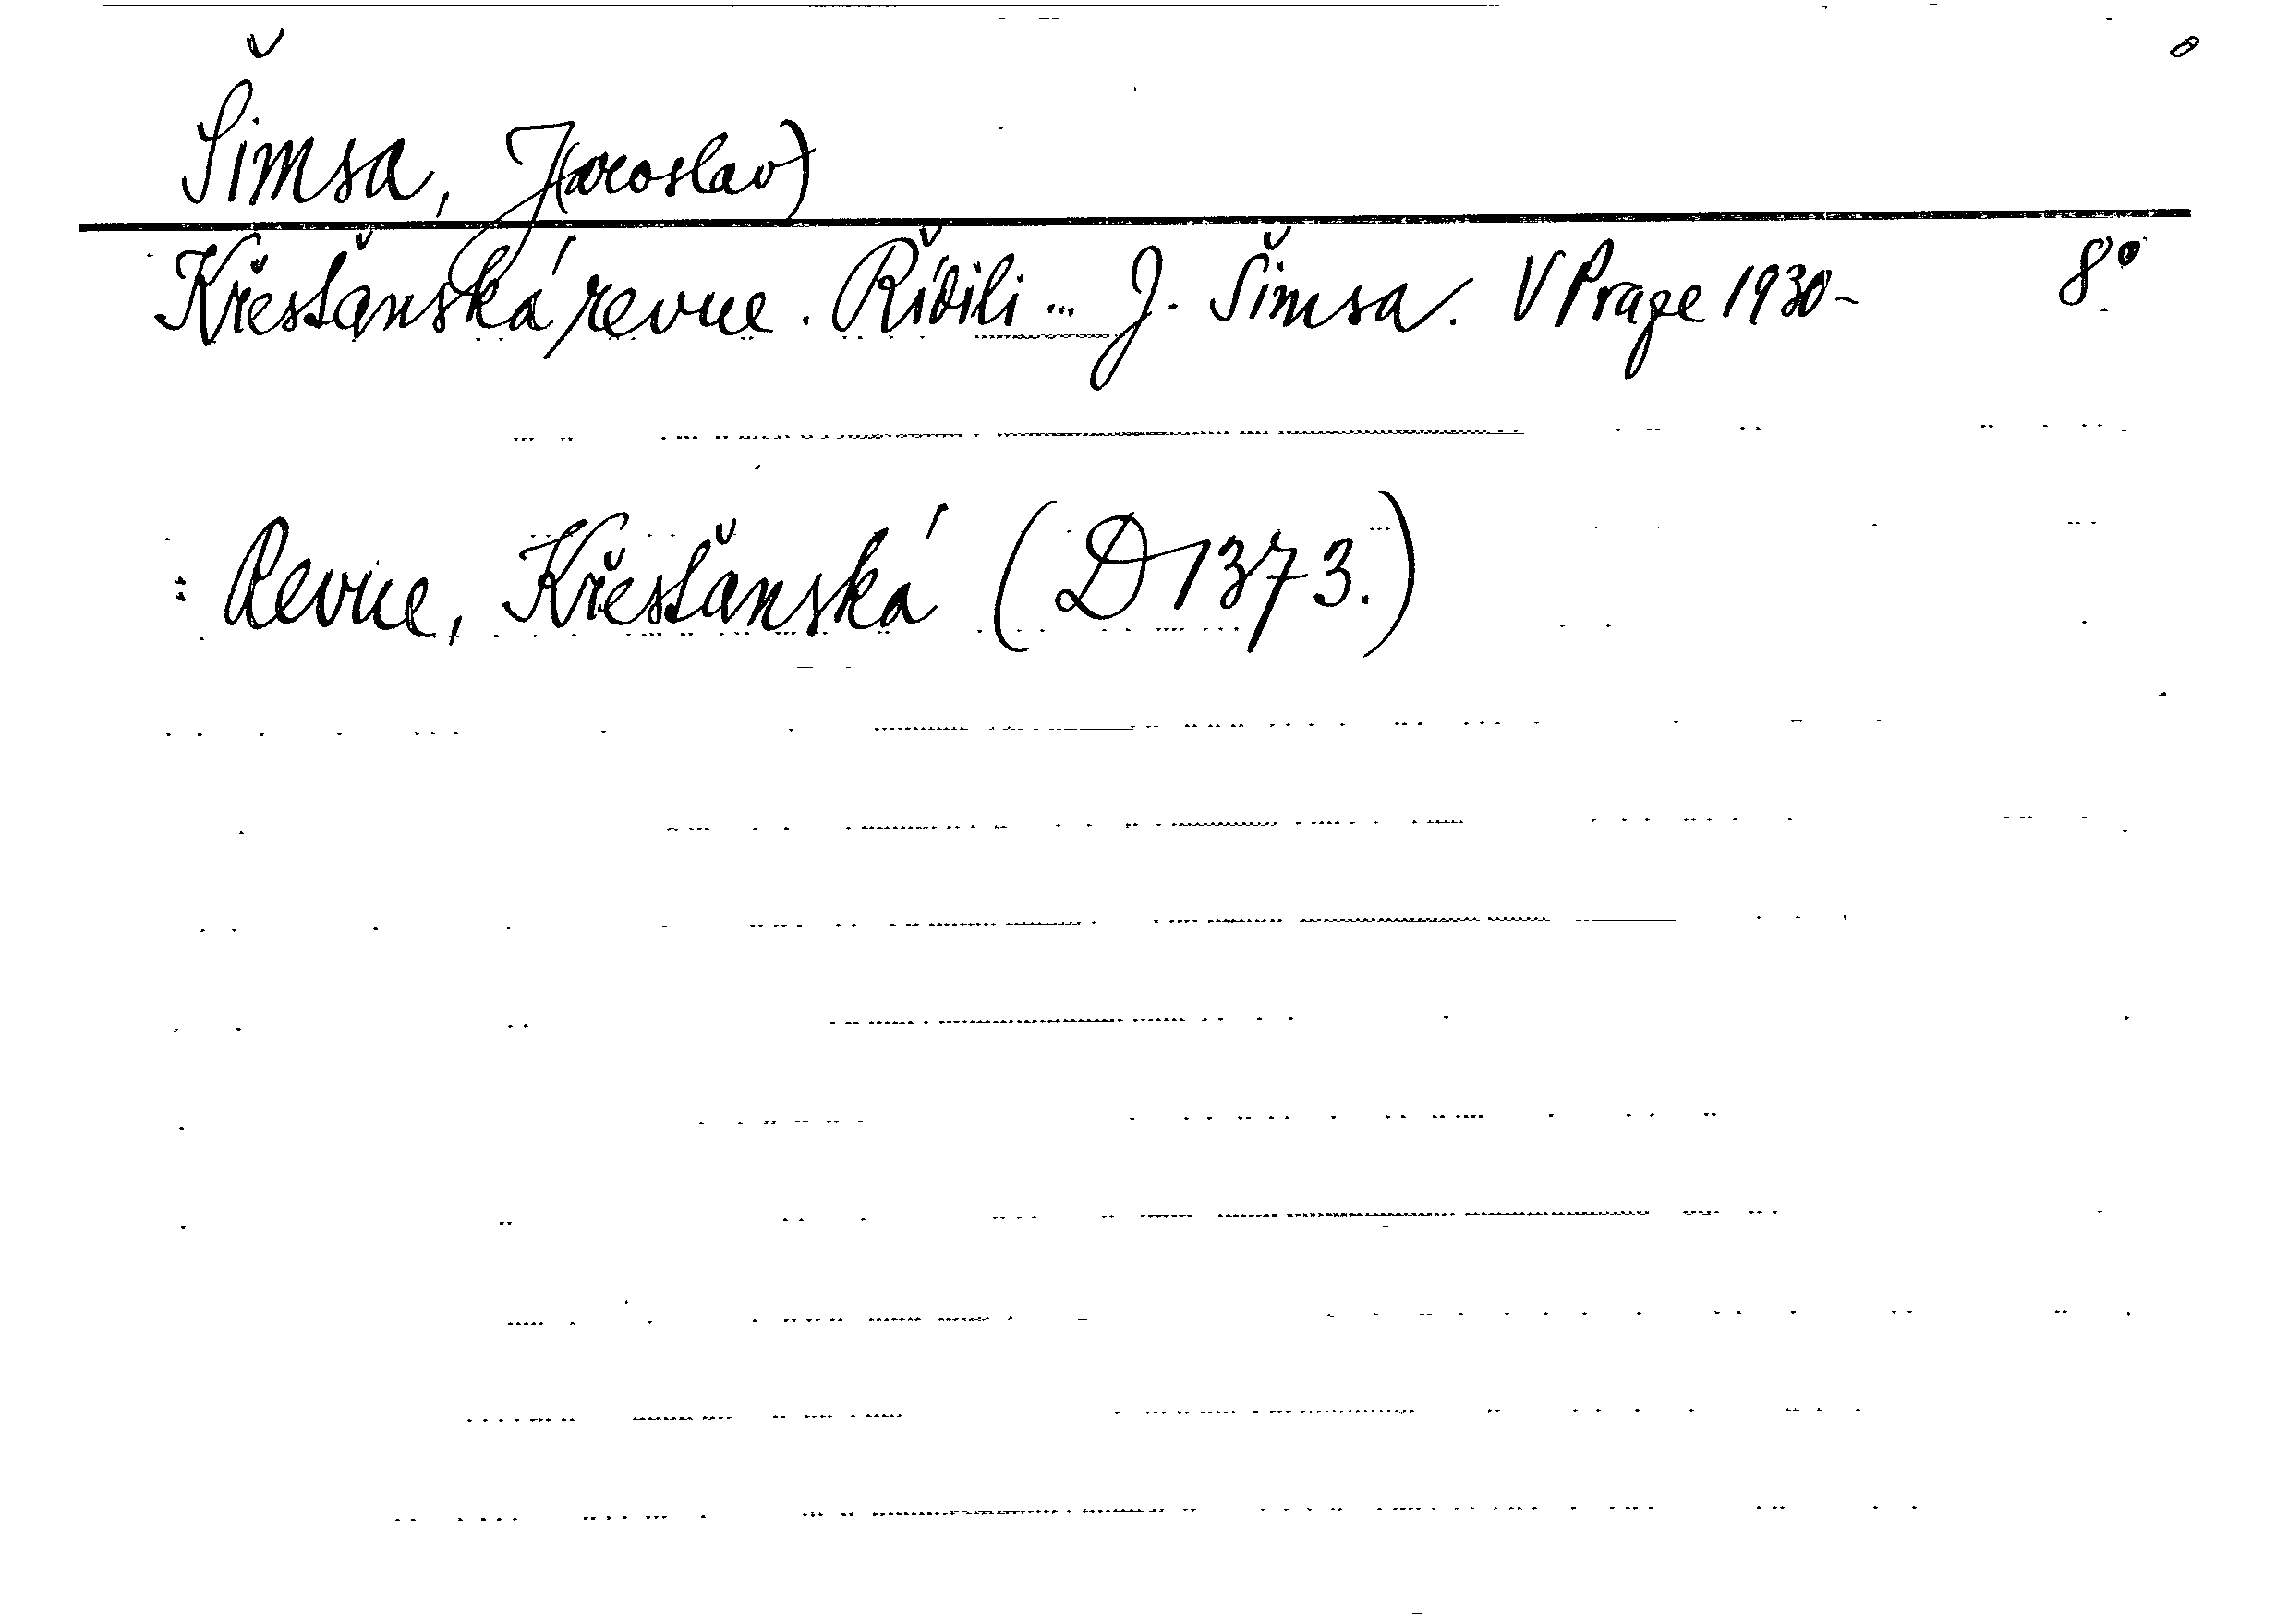 Šimsa, J(aroslav)
Křesťanská revue. Řídili ... J. Šimsa. V Praze 1930- 8°.
: Revue, Křesťanská (D 1373.)